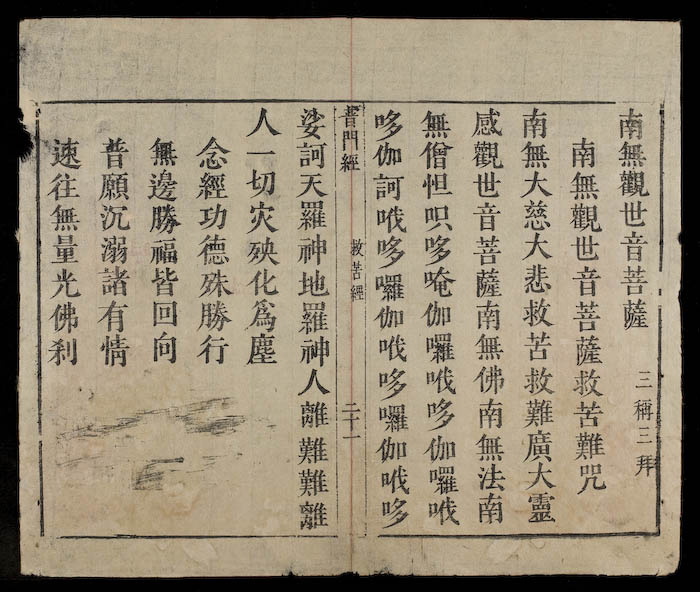 南無觀世音菩薩 三稱三拜
南無觀世音菩薩救苦難咒
南無大慈大悲救苦救難廣大靈
感觀世音菩薩南無佛南無法南
無僧怛呮哆唵伽囉哦哆伽囉哦
哆伽訶哦哆囉伽哦哆囉伽哦哆
普門經 救苦經 二十一
娑訶天羅神地羅神人離難難離
人一切灾殃化爲塵
念經功德殊勝行
無邊勝福皆回向
普願沉溺諸有情
速往無量光佛刹